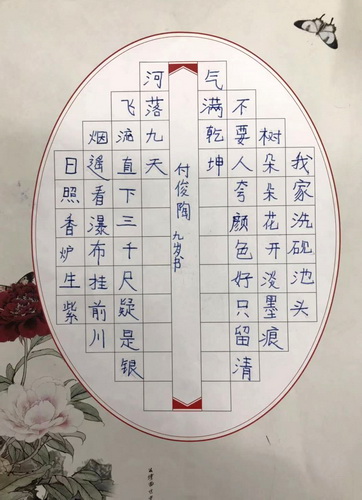 我家洗砚池头
树朵朵花开淡墨痕
不要人夸颜色好只留清
气满乾坤
付俊陶 九岁书
日照香炉生紫
烟遥看瀑布挂前川
飞流直下三千尺疑是银
河落九天